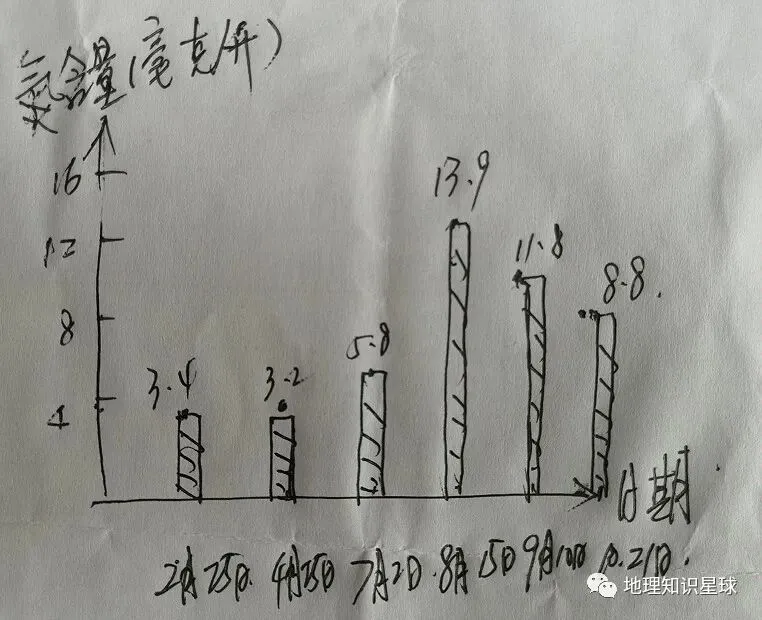 氮含量(毫克/升)
16
13.9
12
11.8
8.8.
8
5.8
3.4
3.2
4
日期
2月25日. 4月25日 7月2日. 8月15日 9月10日 10.21日.
地理知识星球